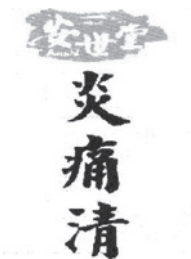 安世堂
炎痛清